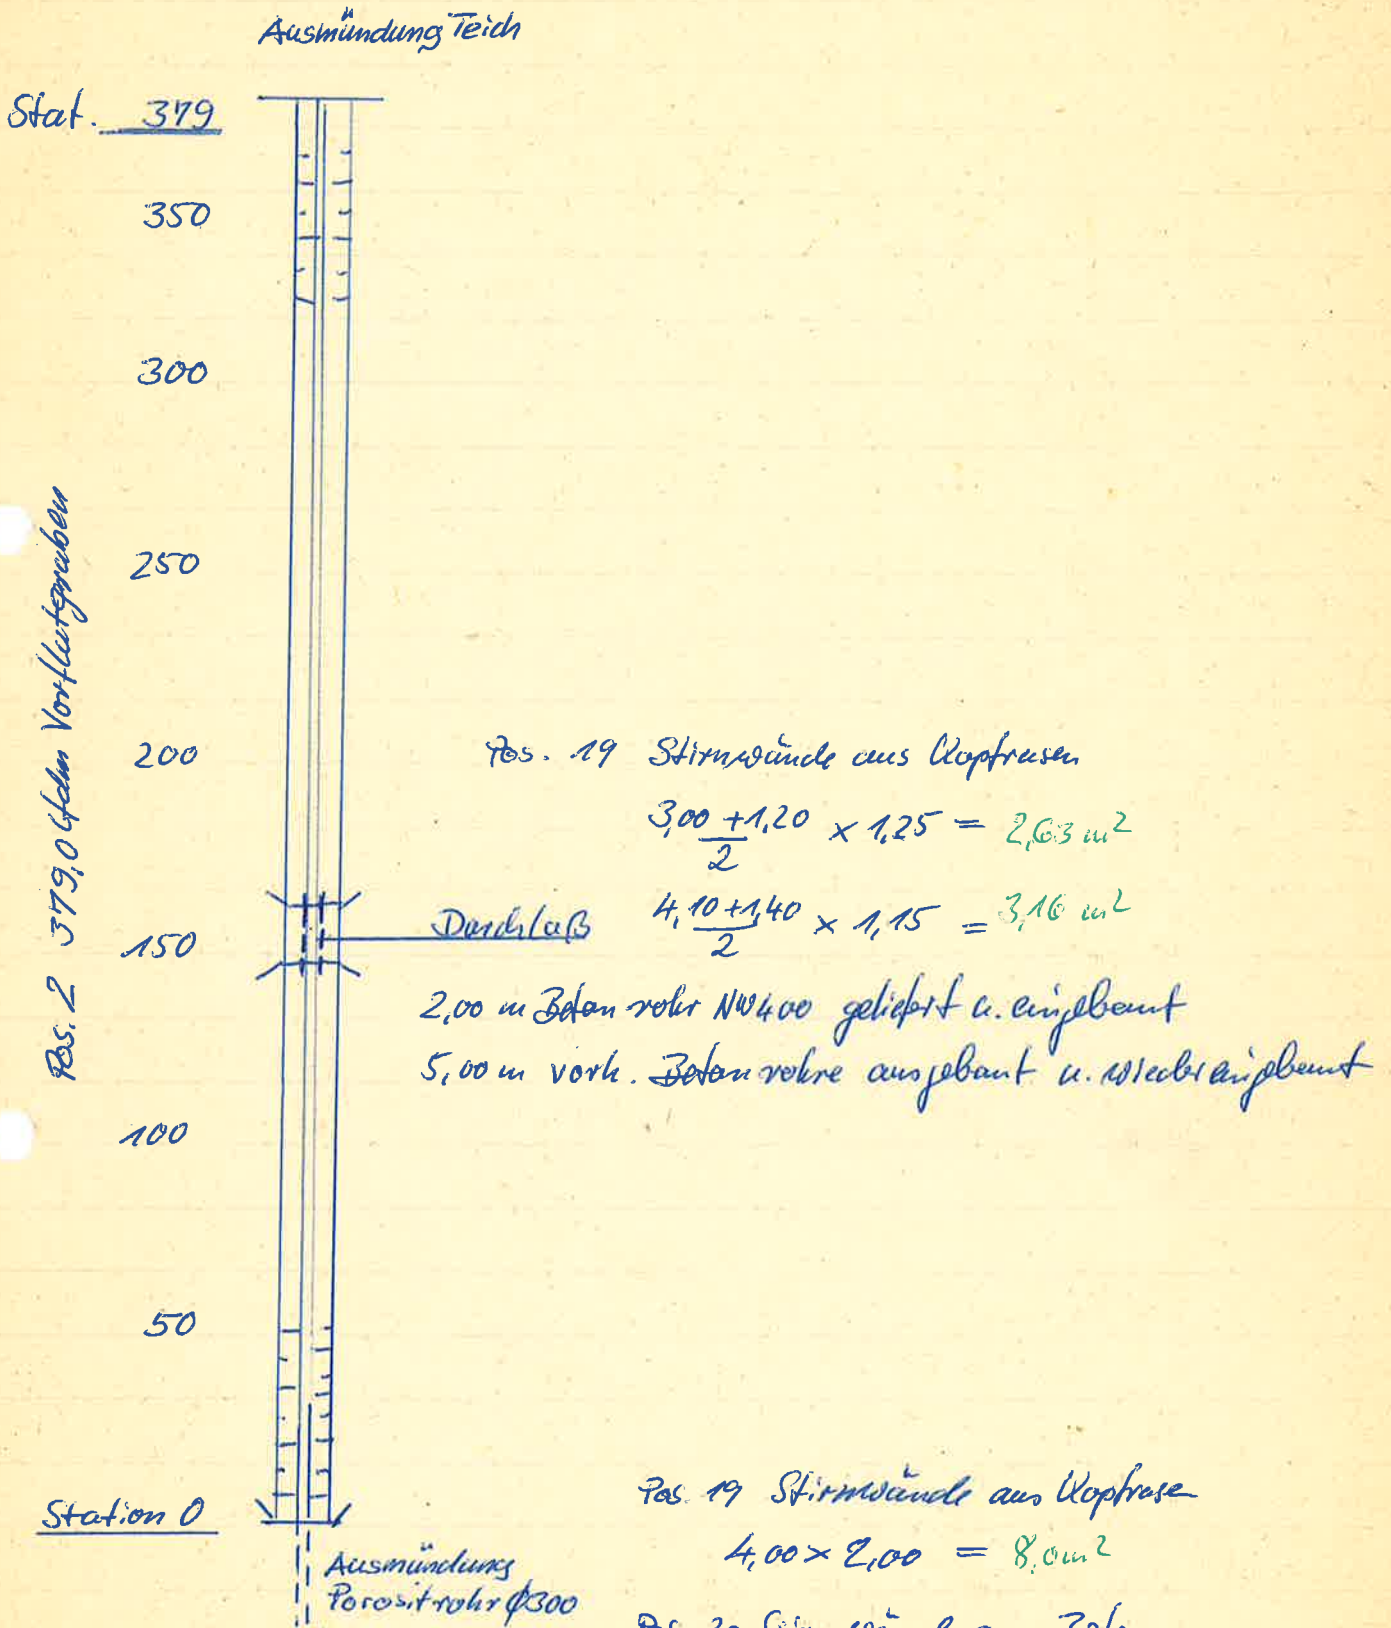 Ausmündung Teich
Stat. 379
350
300
250
200
150
100
50
Station 0
Pos. 2 379,0 lfdm Vorflutgraben
Pos. 19 Stirnwände aus Kopfrasen
3,00 + 1,20 / 2 × 1,25 = 2,63 m²
4,10 + 1,40 / 2 × 1,15 = 3,16 m²
Durchlaß
2,00 m Betonrohr NW 400 geliefert u. eingebaut
5,00 m vorh. Betonrohre ausgebaut u. wiedereingebaut
Pos. 19 Stirnwände aus Kopfrasen
4,00 × 2,00 = 8,0 m²
Ausmündung
Porositrohr ϕ300